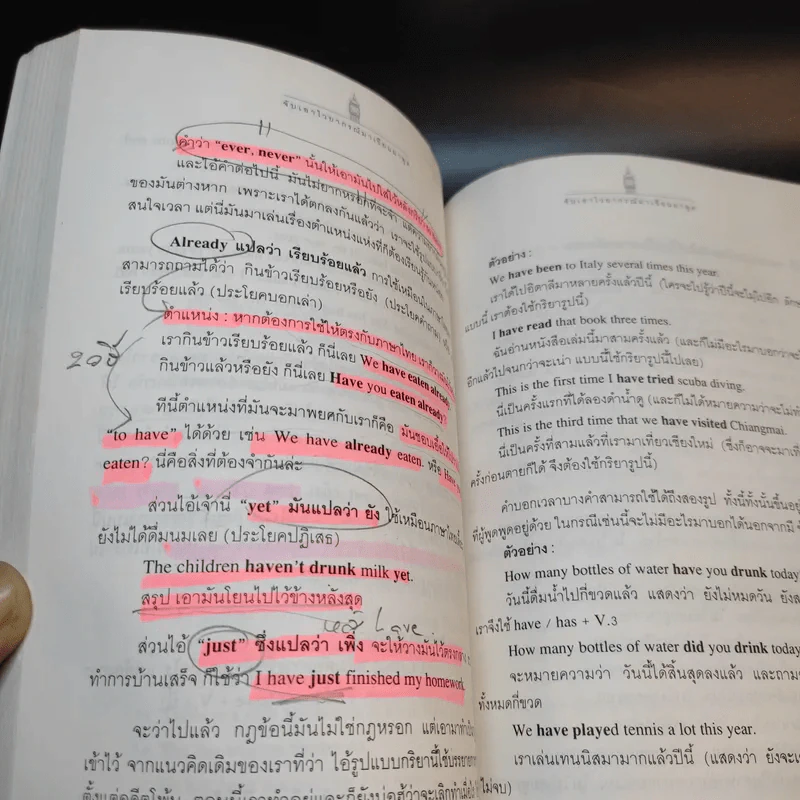 จับเอาไวยากรณ์มาเรียงมาพูด
คำว่า "ever, never" นั้นให้เอามันไปใส่ไว้หลัง
และไอ้คำต่อไปนี้ มันไม่ยากหรอกที่จะจำ
ของมันต่างหาก เพราะเราได้ตกลงกันแล้วว่า
สนใจเวลา แต่นี่มันมาเล่นเรื่องตำแหน่งแห่งที่ก็ต้องเรียนรู้
Already แปลว่า เรียบร้อยแล้ว การใช้เหมือนในภาษา
สามารถถามได้ว่า กินข้าวเรียบร้อยหรือยัง (ประโยคคำถาม)
เรียบร้อยแล้ว (ประโยคบอกเล่า)
ตำแหน่ง : หากต้องการใช้ให้ตรงกับภาษาไทย
เรากินข้าวเรียบร้อยแล้ว ก็นี่เลย We have eaten already.
กินข้าวแล้วหรือยัง ก็นี่เลย Have you eaten already?
2วิธี
ทีนี้ตำแหน่งที่มันจะมาพยศกับเราก็คือ มันชอบ
"to have" ได้ด้วย เช่น We have already eaten. หรือ Have
eaten? นี่คือสิ่งที่ต้องจำกันล่ะ
ส่วนไอ้เจ้านี่ "yet" มันแปลว่า ยัง ใช้เหมือนภาษาไทย
ยังไม่ได้ดื่มนมเลย (ประโยคปฏิเสธ)
The children haven't drunk milk yet.
สรุป เอามันโยนไปไว้ข้างหลังสุด
หลัง have
ส่วนไอ้ "just" ซึ่งแปลว่า เพิ่ง จะให้วางมันไว้ตรงกลาง
ทำการบ้านเสร็จ ก็ใช้ว่า I have just finished my homework.
จะว่าไปแล้ว กฎข้อนี้มันไม่ใช่กฎหรอก แต่เอามา
เข้าไว้ จากแนวคิดเดิมของเราที่ว่า ไอ้รูปแบบกริยานี้ใช้บรรยาย
จับเอาไวยากรณ์มาเรียงมาพูด
ตัวอย่าง :
We have been to Italy several times this year.
เราได้ไปอิตาลีมาหลายครั้งแล้วปีนี้ (ใครจะไปรู้ว่าปีนี้จะไม่ไปอีก
แบบนี้ เราต้องใช้กริยารูปนี้)
I have read that book three times.
ฉันอ่านหนังสือเล่มนี้มาสามครั้งแล้ว (และก็ไม่มีอะไรมาบอกว่า
อีกแล้วไปจนกว่าจะเน่า แบบนี้ใช้กริยารูปนี้ไปเลย)
This is the first time I have tried scuba diving.
นี่เป็นครั้งแรกที่ได้ลองดำน้ำดู (และก็ไม่ได้หมายความว่าจะไม่
This is the third time that we have visited Chiangmai.
นี่เป็นครั้งที่สามแล้วที่เรามาเที่ยวเชียงใหม่ (ซึ่งก็อาจจะมา
ครั้งก่อนตายก็ได้ จึงต้องใช้กริยารูปนี้)
คำบอกเวลาบางคำสามารถใช้ได้ถึงสองรูป ทั้งนี้ทั้งนั้นขึ้นอยู่
ที่ผู้พูดพูดอยู่ด้วย ในกรณีเช่นนี้จะไม่มีอะไรมาบอกได้นอกจากมี
ตัวอย่าง :
How many bottles of water have you drunk today
วันนี้ดื่มน้ำไปกี่ขวดแล้ว แสดงว่า ยังไม่หมดวัน
เราจึงใช้ have / has + V.3
How many bottles of water did you drink today
จะหมายความว่า วันนี้ได้สิ้นสุดลงแล้ว และถาม
ทั้งหมดกี่ขวด
We have played tennis a lot this year.
เราเล่นเทนนิสมามากแล้วปีนี้ (แสดงว่า ยัง
ไม่จบ)